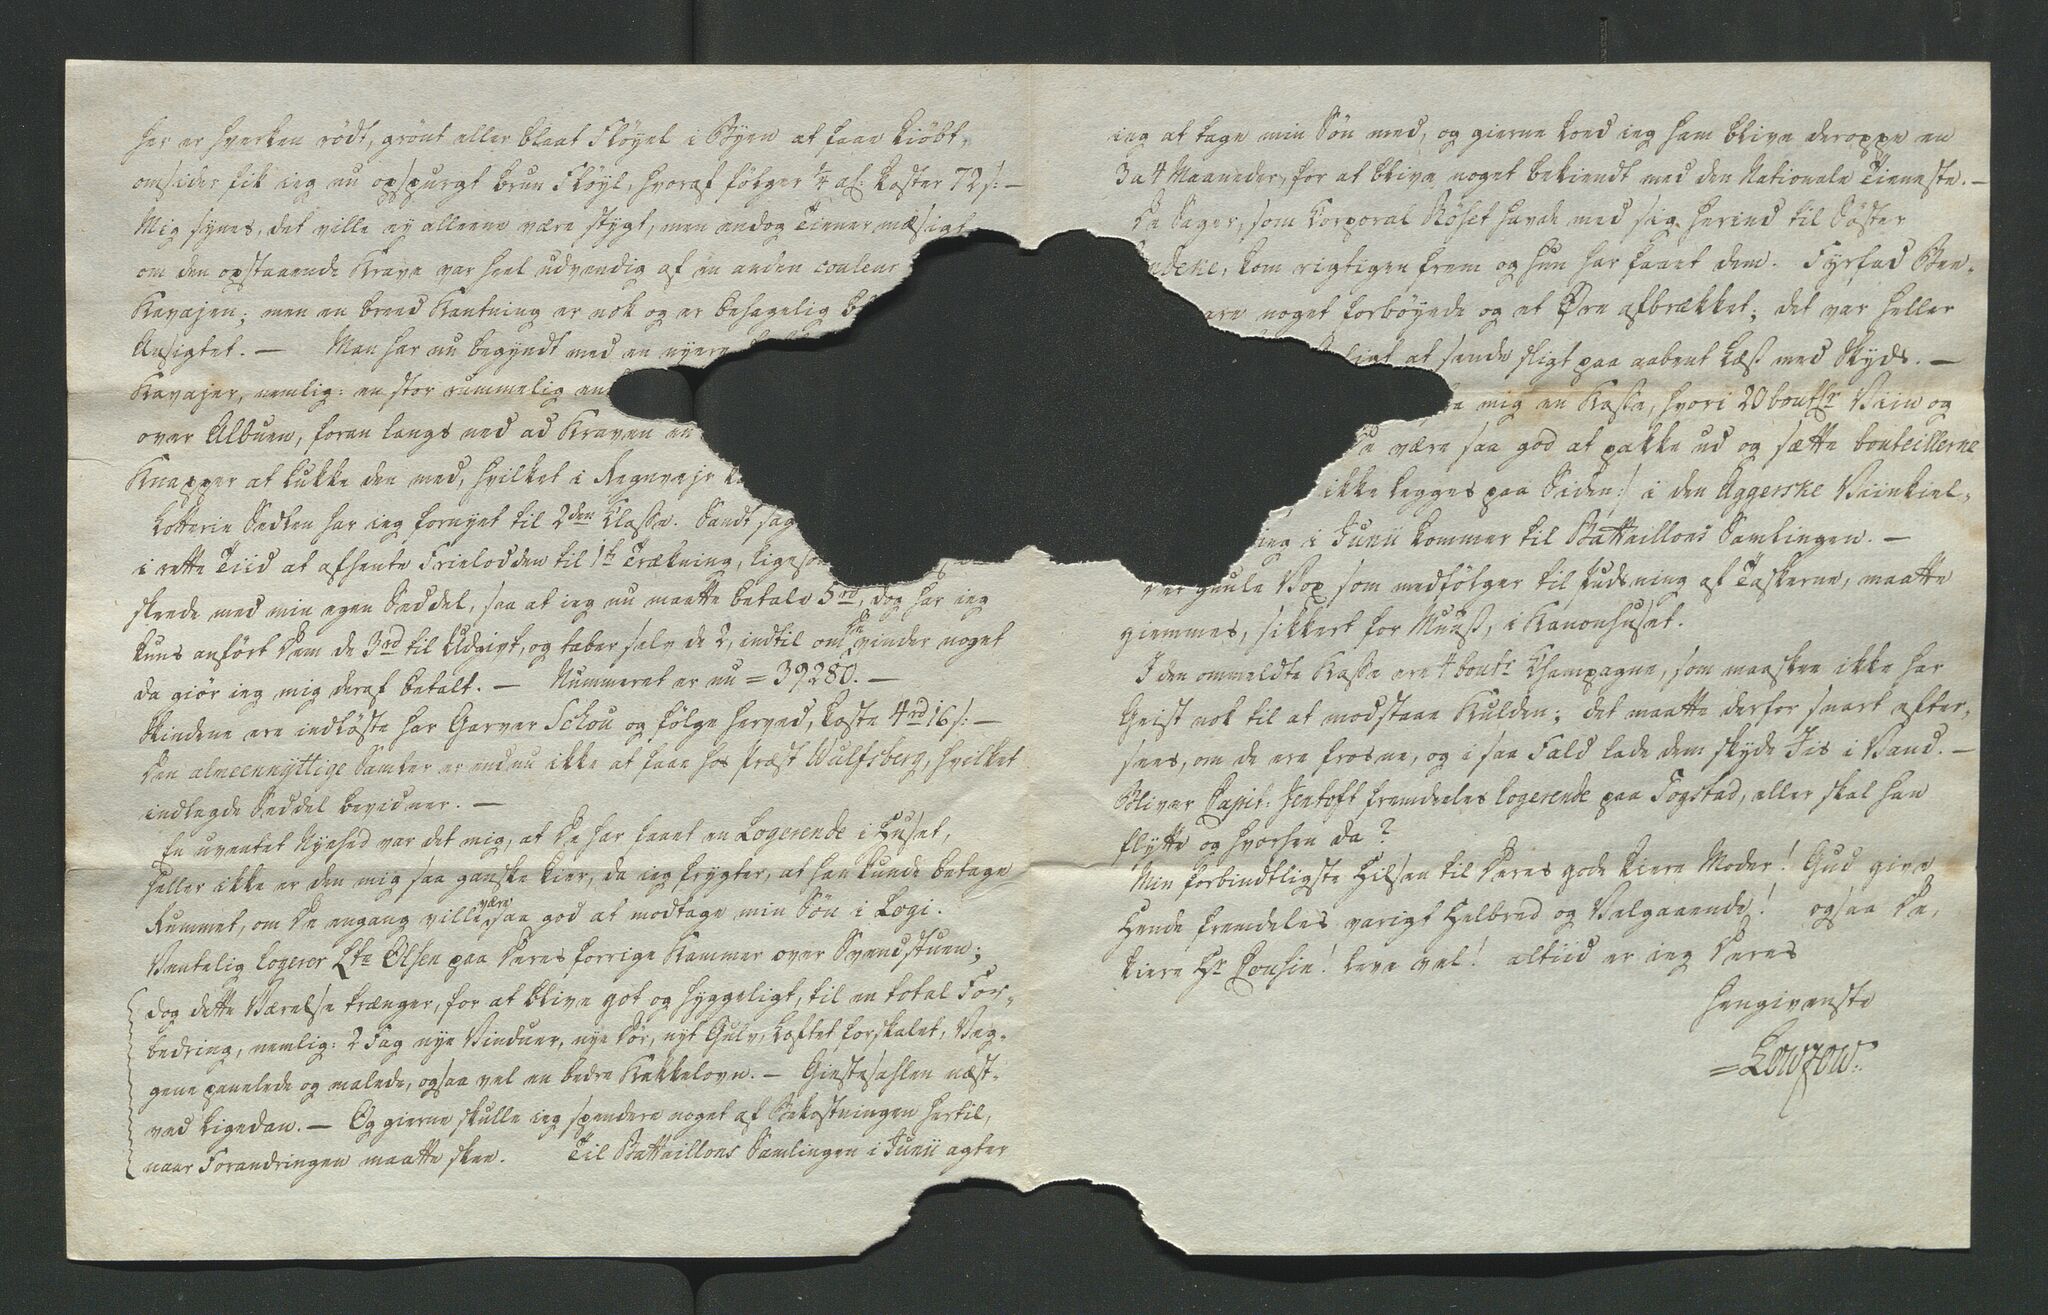 her er hverken rödt, grönt eller blaat Flöyel i Byen at faae kiöbt,
omsider fik ieg nu opspurgt brun Flöyl, hvoraf fölger 1/4 al: koster 72 s: —
Mig synes, det ville ey alleene være stygt, men endog Tiener mæsigt
om den opstaaende Krave var heel udvendig af en anden couleur
Kavajen; men en breed Kantning er nok og er behagelig
Ansigtet. — Man har nu begyndt med en nyere
Kavajer, nemlig: en stor rummelig
over Albuen, foran langs ned ad Kraven en
Knapper at lukke den med, hvilket i Regnvejr
Lotterie Sedlen har ieg fornyet til 2den Classe. Sandt
i rette Tiid at afhente Frielodden til 1te Trækning, ligeso
skeede med min egen Seddel, saa at ieg nu maatte betale 5rd, dog har ieg
kuns anfört Dem de 3rd til Udgivt, og taber selv de 2, indtil om De vinder noget
da giör ieg mig deraf betalt. — Nummeret er nu = 39280. —
Skindene ere indlöste hos Garver Schou og fölge herved, koste 4rd 16 s: —
Den almeennyttige Samler er endnu ikke at faae hos Præst Wulfsberg, hvilket
indlagde Seddel bevidner. —
En uventet Nyehed var det mig, at De har faaet en Logerende i Huset,
heller ikke er den mig saa ganske kier, da ieg frygter, at han kunde betage
Rummet, om De engang ville være saa god at modtage min Sön i Logi.
Ventelig logerer Lte Olsen paa Deres forrige Kammer over Svendstuen;
dog dette Værelse trænger, for at blive got og hyggeligt, til en total For-
bedring, nemlig: 2 Fag nye Vinduer, nye Dör, nyt Gulv, Loftet forskalet, Væg-
gene panelede og malede, ogsaa vel en bedre Kakkelovn. — Giestesahlen næst-
ved ligedan. — Og gierne skulle ieg spendere noget af Bekostningen hertil,
naar Forandringen maatte skee. Til Battaillons Samlingen i Junii agter
ieg at tage min Sön med, og gierne lod ieg ham blive deroppe en
3 a 4 Maaneder, for at blive noget bekiendt med den Nationale Tieneste. —
De Sager, som Corporal Röset havde med sig herind til Söster
kom rigtigen frem og hun har faaet dem. Fyrfad Bee-
vare noget forböyede og et Øre afbrækket; det var heller
at sende sligt paa aabent Læß med Skyds. —
mig en Kasse, hvori 20 boutlr Viin og
være saa god at pakke ud og sætte bouteillerne
ikke legges paa Siden:/ i den Aggerske Viinkiel-
ieg i Junii kommer til Battaillons Samlingen. —
guule Vox som medfölger til Pudsning af Taskerne, maatte
giemmes, sikkert for Muuß, i Kanonhuset.
I den ommeldte Kasse ere 4 boutr Champagne, som maaskee ikke har
Geist nok til at modstaae Kulden; det maatte derfor snart efter-
sees, om de ere frosne, og i saa Fald lade dem skyde Iis i Vand. —
Bliver Capit: Jentoft fremdeeles logerende paa Togstad, eller skal han
flytte og hvorhen da?
Min forbindtligste Hilsen til Deres gode kiere Moder! Gud give
Hende fremdeles varigt Helbred og Velgaaende! ogsaa De,
kiere Hr Cousin! leve vel! altiid er ieg Deres
hengivenste
= Lowzow.